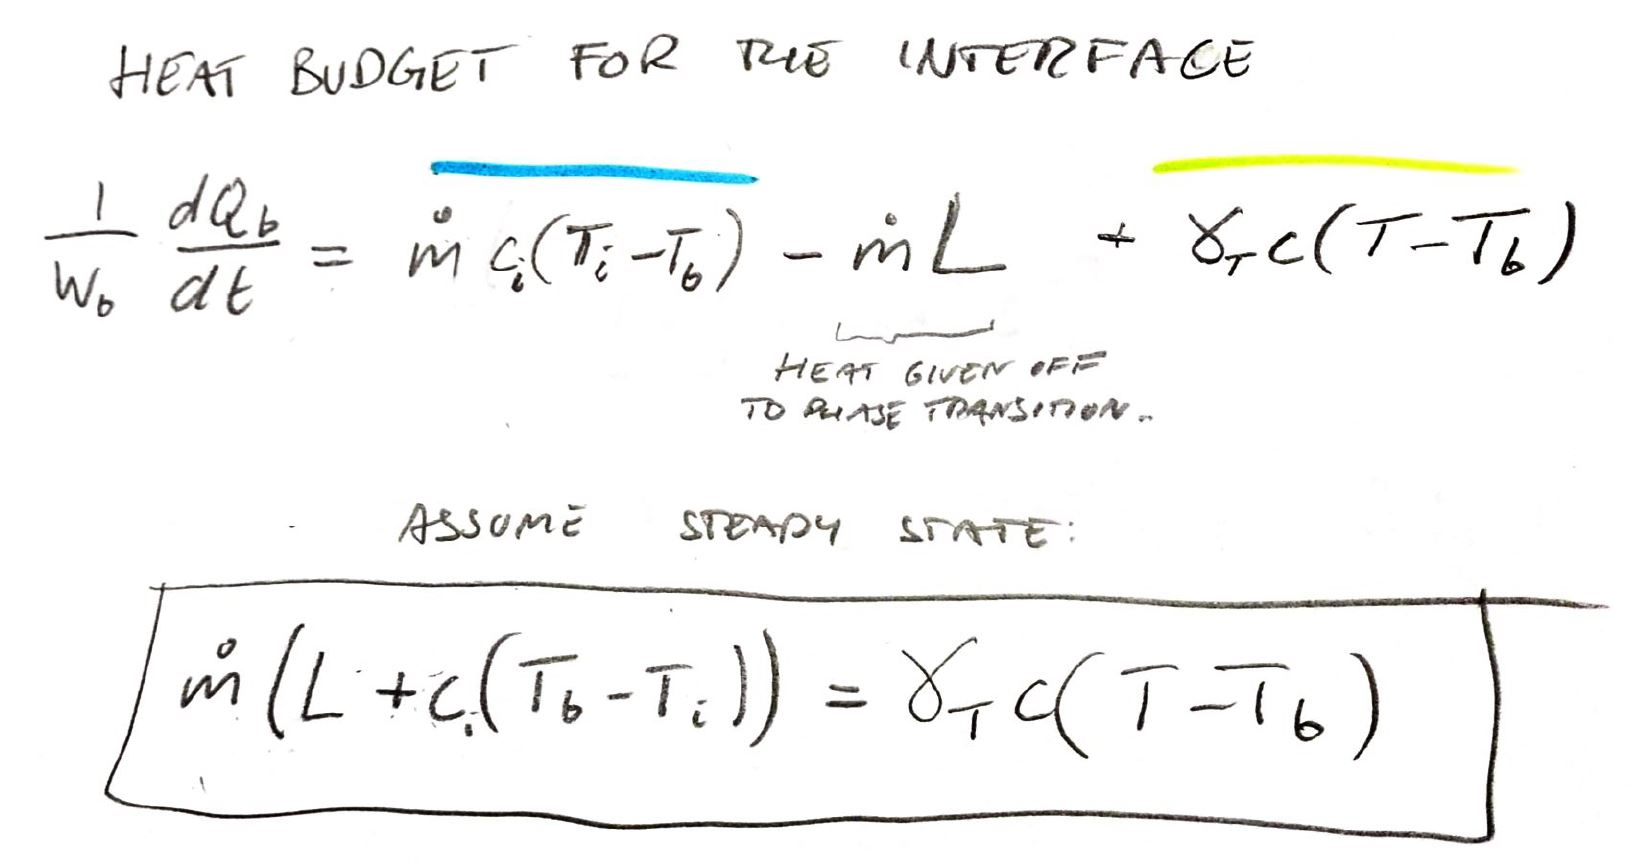 HEAT BUDGET FOR THE INTERFACE
1/W_b dQ_b/dt = ṁ c_i(T_i - T_b) - ṁL + γ_T c(T - T_b)
HEAT GIVEN OFF
TO PHASE TRANSITION..
ASSUME STEADY STATE:
ṁ(L + c_i(T_b - T_i)) = γ_T c(T - T_b)